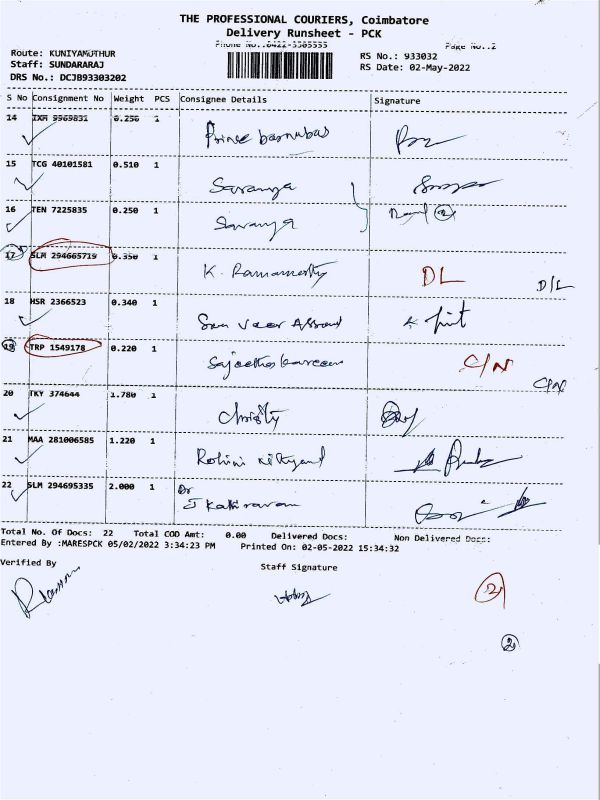 THE PROFESSIONAL COURIERS, Coimbatore
Delivery Runsheet - PCK
Phone No.:0422-3305555 Page No.:2
Route: KUNIYAMUTHUR RS No.: 933032
Staff: SUNDARARAJ RS Date: 02-May-2022
DRS No.: DCJB93303202
S No Consignment No Weight PCS Consignee Details Signature
14 IXM 9969831 0.250 1 Prince barnabas
15 TCG 40101581 0.510 1 Saranya
16 TEN 7225835 0.250 1 Saranya
17 SLM 294665719 0.350 1 K. Ramamoorthy DL D/L
18 HSR 2366523 0.340 1
19 TRP 1549178 0.220 1 C/N C/N
20 TKY 374644 1.780 1 Christy
21 MAA 281006585 1.220 1 Rohini
22 SLM 294695335 2.000 1 Dr
J Kathiravan
Total No. Of Docs: 22 Total COD Amt: 0.00 Delivered Docs: Non Delivered Docs:
Entered By :MARESPCK 05/02/2022 3:34:23 PM Printed On: 02-05-2022 15:34:32
Verified By Staff Signature
2
2